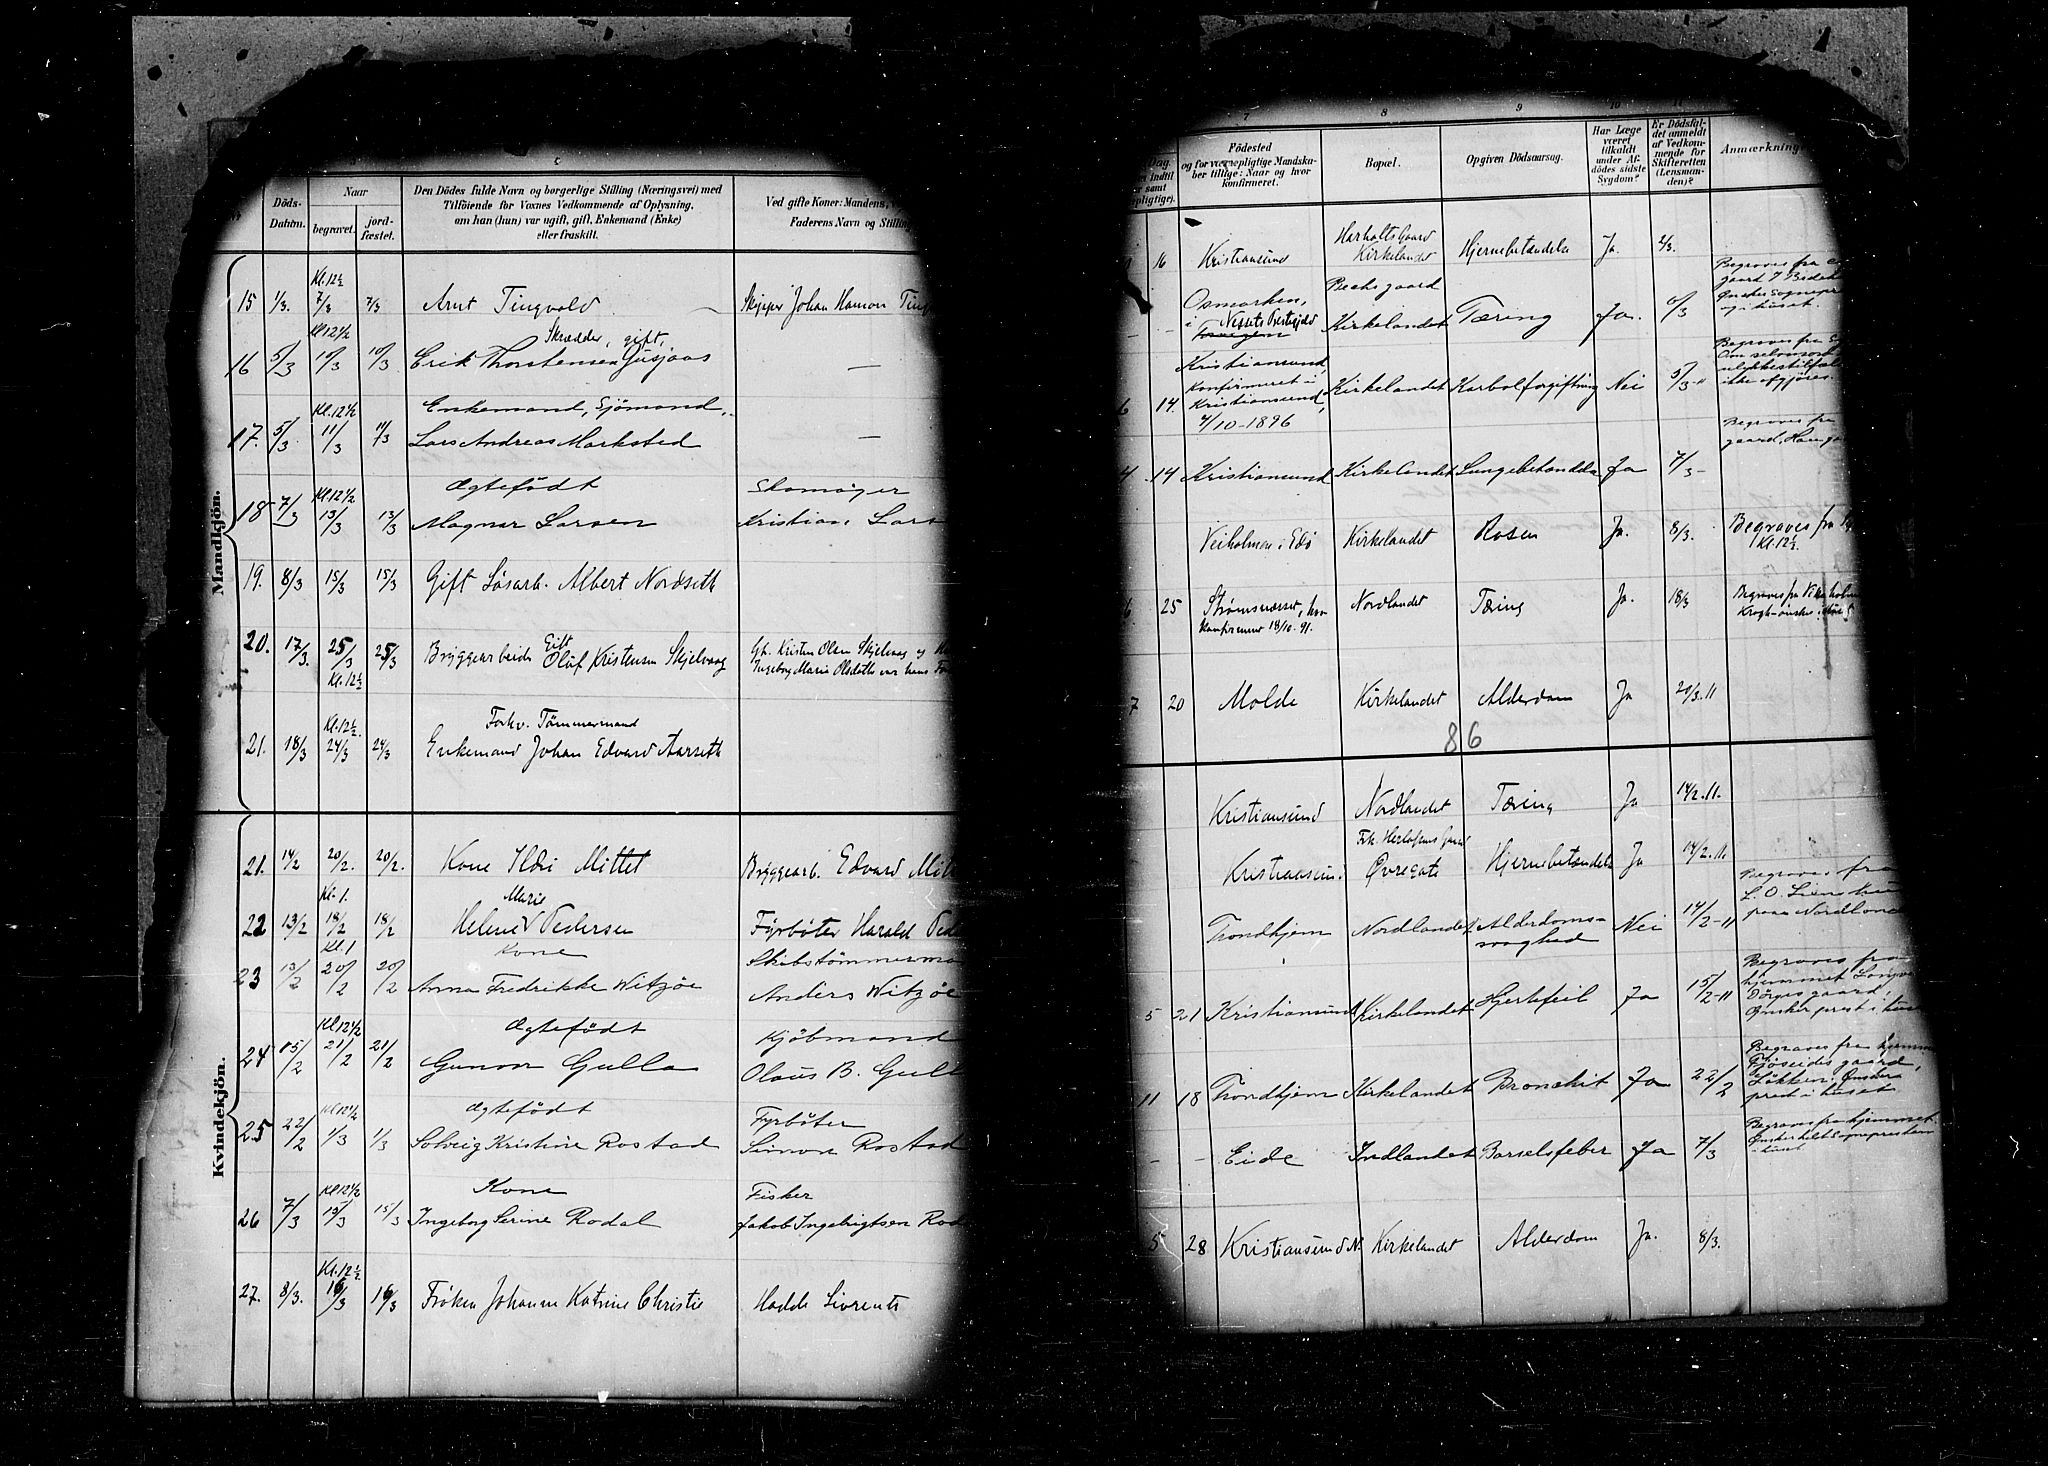 Döds-
Datum.
Naar
begravet.
jord-
fæstet.
Den Dödes fulde Navn og borgerlige Stilling (Næringsvei) med
Tilföiende for Voxnes Vedkommende af Oplysning,
om han (hun) var ugift, gift, Enkemand (Enke)
eller fraskilt.
Ved gifte Koner: Mandens,
Faderens Navn og Stilling
Mandkjön.
Kl. 12½
15 1/3. 7/3 7/3 Arnt Tingvold Skipper Johan Hamon Ting
Kl 12½ Skrædder, gift,
16 5/3 10/3 10/3 Erik Thorstensen Gusjaas —
Kl. 12½ Enkemand, Sjömand,
17. 5/3 11/3 11/3 Lars Andreas Marksted —
Kl. 12½ Ægtefödt Skomager
18 7/3 13/3 13/3 Magnar Larsen Kristian Lars
19. 8/3 15/3 15/3 Gift Løsarb. Albert Nordseth
20. 17/3. 25/3 25/3 Bryggearbeider Gift Oluf Kristensen Skjelvaag Gb. Kristen Olsen Skjelvaag og
Kl. 12½ Ingeborg Marie Olsdatter var hans
Kl. 12½. Forhv. Tömmermand
21. 18/3 24/3 24/3 Enkemand Johan Edvard Aarseth
Kvindekjön.
21. 14/2 20/2. 20/2. Kone Ildri Mittet Bryggearb. Edvard Mit
Kl. 1. Marie
22 13/2 18/2 18/2 Helene Pedersen Fyrbøter Harald Ped
Kl. 1 Kone Skibstömmerma
23 13/2 20/2 20/2 Anna Fredrikke Witzøe Anders Witzøe
Kl 12½ Ægtefödt Kjöbmand
24 15/2 21/2 21/2 Gunvor Gulla Olaus B. Gull
Kl 12½ Ægtefödt Fyrböter
25 22/2 1/3 1/3 Solveig Kristine Rostad Simon Rostad
Kl 12½ Kone Fisker
26 7/3 15/3 15/3 Ingeborg Serine Rodal Jakob Ingebrigtsen Rod
Kl. 12½
27. 8/3. 16/3 16/3 Frøken Johanne Katrine Christie
7
8
9
10
11
Dag.
Födested
og for værnepligtige Mandska-
ber tillige: Naar og hvor
konfirmeret.
Bopæl.
Opgiven Dödsaarsag.
Har Læge
været
tilkaldt
under Af-
dödes sidste
Sygdom?
Er Dödsfal-
det anmeldt
af Vedkom-
mende for
Skifteretten
(Lensman-
den)?
Anmærkninge
16 Kristiansund Kirkelandet Hjernebetændelse Ja 2/3.
Osmarken, Bechs gaard
i Nessets Prestegjeld Kirkelandet Tæring Ja. 6/3
Begraves fra
Kristiansund
Konfirmeret i
6 14. Kristiansund, Kirkelandet Karbolforgiftning Nei 5/3-11
4/10-1896
Begraves fra
ikke afgjöres.
4 14 Kristiansund Kirkelandet Lungebetændelse Ja 7/3-
Begraves fra
gaard,
Veiholmen i Edö Kirkelandet Rosen Ja. 8/3. Begraves fra
Kl. 12½.
6 25 Strømsneset, Nordlandet Tæring Ja. 18/3 Begraves fra
konfirmeret 18/10-91.
7 20 Molde Kirkelandet Alderdom Ja 20/3.11
86
Kristiansund Nordlandet Tæring Ja 14/2.11.
Kristiansund Øvregate Hjernebetændelse Ja 14/2.11.
Trondhjem Nordlandet Alderdoms- Nei 14/2-11
svaghed
Begraves fra
Nordland
5 21 Kristiansund Kirkelandet Hjertefeil Ja 15/2-11
Begraves fra
hjemmet
gaard,
Ønsker prest i hus
11 18 Trondhjem Kirkelandet Bronchit Ja 22/2
Begraves fra hjemme
gaard,
Løkken. Ønsker
prest i huset
- - Eide Indlandet Barselsfeber Ja 7/3
Begraves fra hjemmet.
Ønsker helst Sognepresten
i huset
5 28 Kristiansund N. Kirkelandet Alderdom Ja. 8/3.